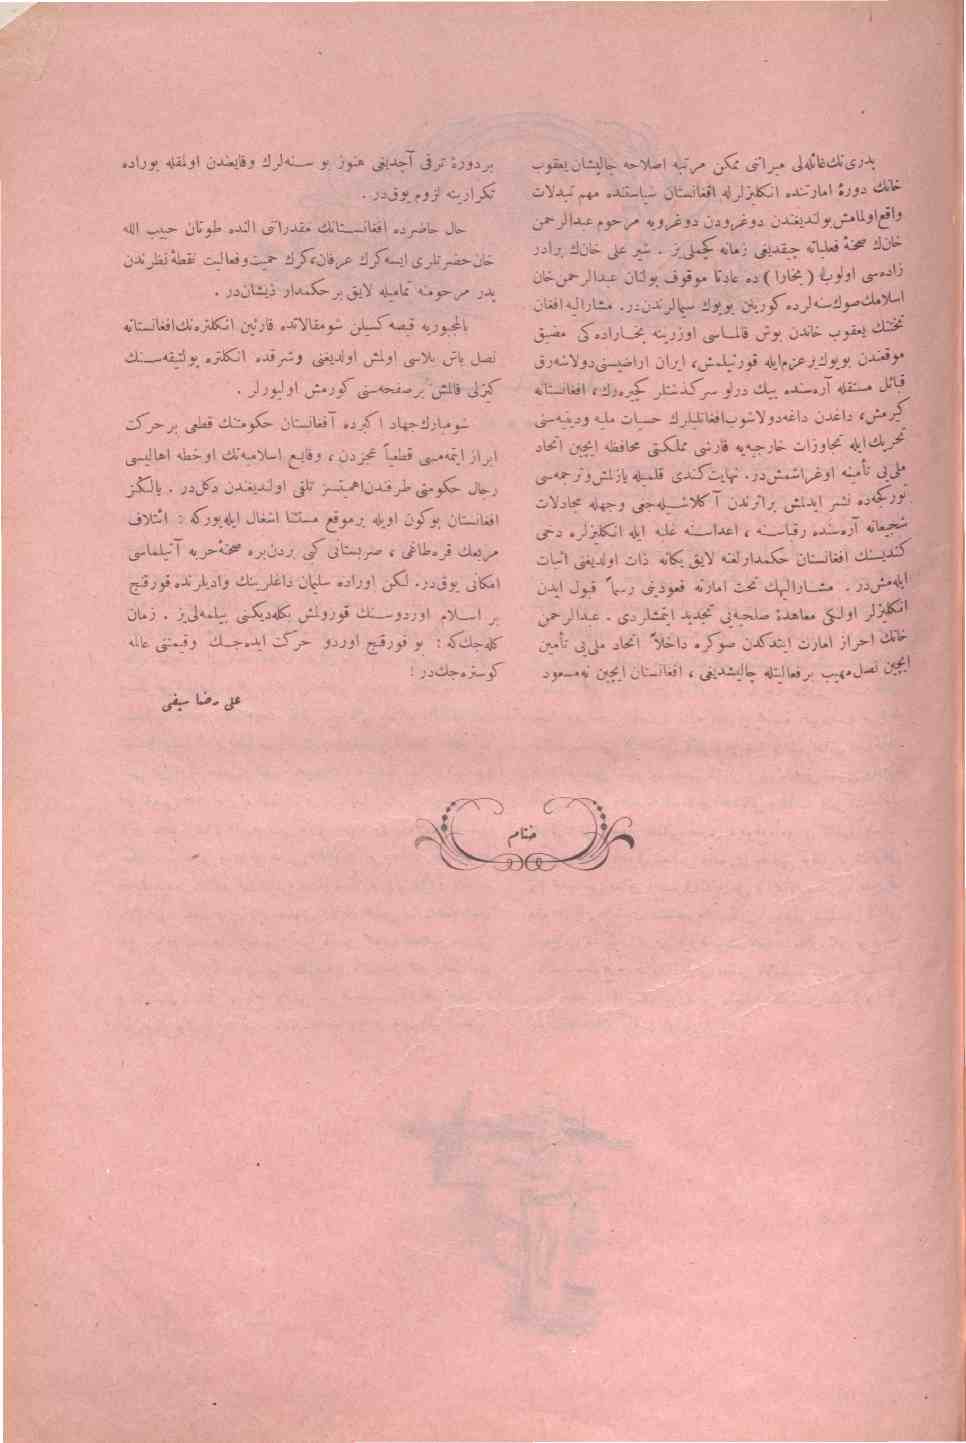 پدری‌نك غائله‌لی میراثی ممكن مرتبه اصلاحه چالیشان یعقوب
خانك دورهٔ امارتنده انكلیزلرله افغانستان سیاستنده مهم تبدلات
واقع‌اولمامش‌بولندیغندن دوغریدن دوغرویه مرحوم عبدالرحمن
خان‌ك صحنهٔ فعلیاته چیقدیغی زمانه كچملی‌یز . شیر علی خان‌ك برادر
زاده‌سی اولوب ( بخارا ) ده عادتا موقوف بولنان عبدالرحمن‌خان
اسلامك‌صوك‌سنه‌لرده كورینن بویوك سیمالرندن‌در. مشارالیه افغان
تختنك یعقوب خاندن بوش قالماسی اوزرینه بخاراده‌كی مضیق
موقعندن بویوك‌برعزم‌ایله قورتیلمش، ایران اراضیسنی‌دولاشه‌رق
قبائل مستقله آره‌سنده بیك درلو سركذشتلر كچیره‌رك، افغانستانه
كیرمش، داغدن داغه‌دولاشوب‌افغانلیلرك حسیات ملیه ودینیه‌سنی
تحریك‌ایله تجاوزات خارجیه‌یه قارشی مملكتی محافظه ایچین اتحاد
ملی‌یی تأمینه اوغراشمش‌در. نهایت‌كندی قلمیله یازلمش‌وترجمه‌سی
توركجه‌ده نشر ایدلمش براثرندن آكلاشیله‌جغی وجهله مجادلات
شجیعانه آره‌سنده رقباسنه ، اعداسنه غلبه ایله انكلیزلره دخی
كندیسنك افغانستان حكمدارلغنه لایق یكانه ذات اولدیغنی اثبات
ایله‌مش‌در . مشارالیهك تخت امارته قعودینی رسماً قبول ایدن
انكلیزلر اولكی معاهدهٔ صلحیه‌یی تجدید ایتمشلردی . عبدالرحمن
خانك احراز امارت ایتدكدن صوكره داخلاً اتحاد ملی‌یی تأمین
ایچین نصل‌مهیب برفعالیتله چالیشدیغی ، افغانستان ایچین نه‌مسعود
بردورهٔ ترقی آچدیغی هنوز بو سنه‌لرك وقایعندن اولمقله بوراده
تكرارینه لزوم یوق‌در .
حال حاضرده افغانستانك مقدراتنی النده طوتان حبیب الله
خان‌حضرتلری ایسه‌كرك عرفان،كرك حمیت‌وفعالیت نقطهٔ نظرندن
پدر مرحومنه تمامیله لایق برحكمدار ذیشان‌در .
بالمجبوریه قیصه‌كسیلن شومقالاتده قارئین انكلتره‌نك‌افغانستانه
نصل باش بلاسی اولمش اولدیغنی وشرقده انكلتره پولتیقه‌سنك
كیزلی قالمش برصفحه‌سنی كورمش اولیورلر .
شومبارك‌جهاد اكبرده آفغانستان حكومتنك قطعی برحركت
ابراز ایتمه‌مسی قطعیاً عجزدن ، وقایع اسلامیه‌نك اوخطه اهالیسی
رجال حكومتی طرفندن‌اهمیتسز تلقی اولندیغندن دكل‌در . یالكز
افغانستان بوكون اویله برموقع مستثنا اشغال ایله‌یوركه : ائتلاف
مربعك قره‌طاغی ، صربستانی كبی بردن‌بره صحنهٔ‌حربه آتیلماسی
امكانی یوق‌در. لكن اوراده سلیمان داغلرینك وادیلرنده قورقنج
بر اسلام اوردوسنك قورولمش بكله‌دیكنی بیلمه‌لی‌یز . زمان
كله‌جك‌كه : بو قورقنج اوردو حركت ایده‌جك وقیمتنی عالمه
كوستره‌جك‌در !
علی رضا سیفی
ختام